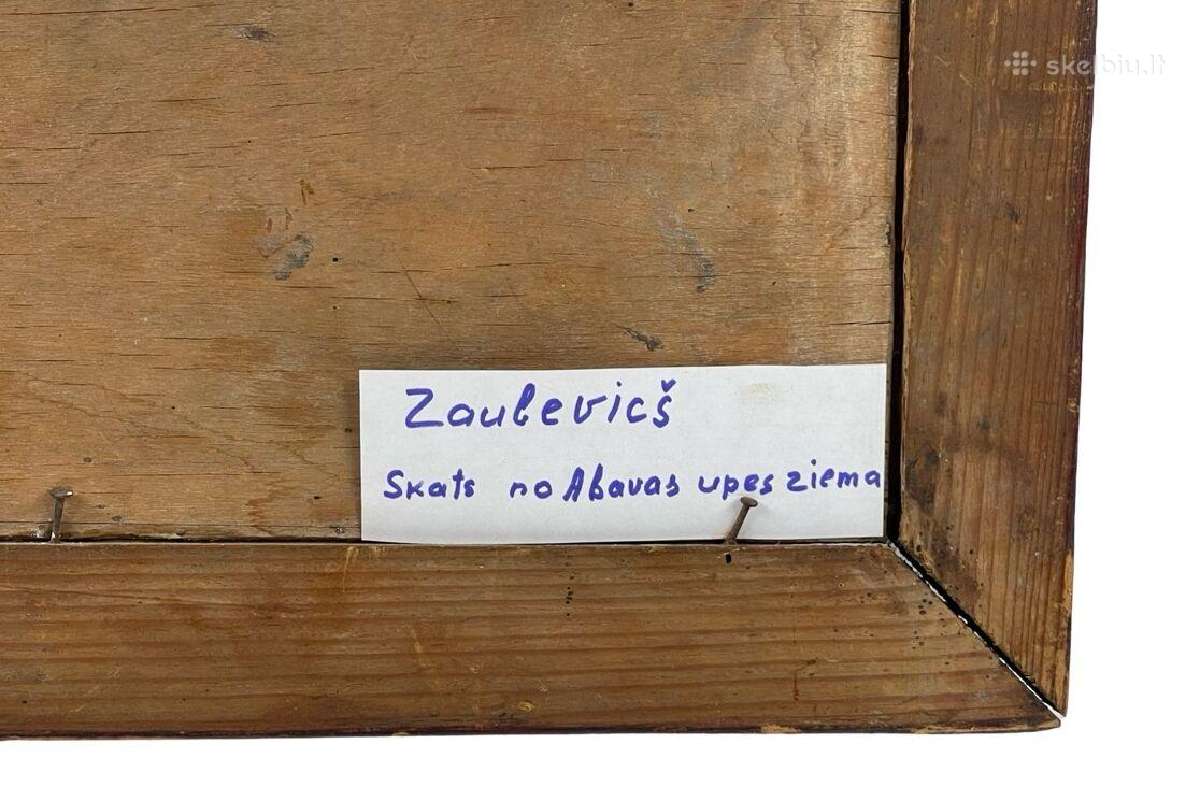 skelbiu.lt
Zaulevicš
Skats no Abavas upes ziema